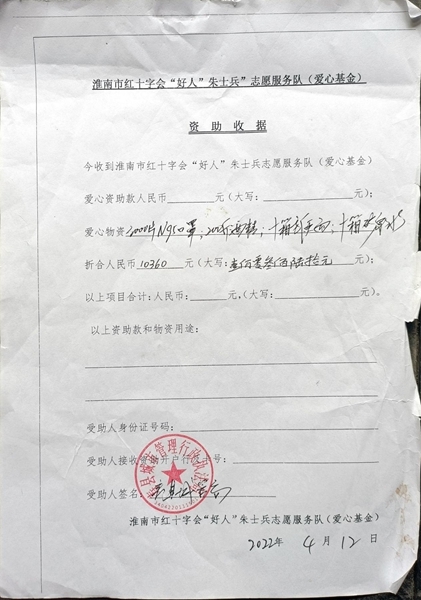 淮南市红十字会“好人”朱士兵”志愿服务队（爱心基金）
资助收据
今收到淮南市红十字会“好人”朱士兵志愿服务队（爱心基金）
爱心资助款人民币 元（大写： 元）；
爱心物资 N95口罩
折合人民币 10360 元（大写： 元）；
以上项目合计：人民币： 元，（大写： 元）。
以上资助款和物资用途：
受助人身份证号码：
受助人接收资助开户行
受助人签名：
淮南市红十字会“好人”朱士兵志愿服务队（爱心基金）
2022年 4 月 12 日